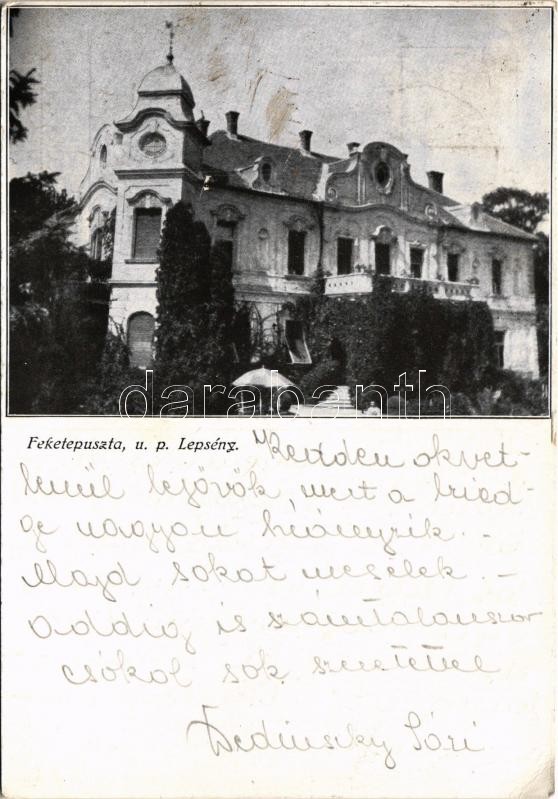 darabanth
Feketepuszta, u. p. Lepsény.
Kedden okvet-
lenül lejövök, mert a bried-
ge nagyon hiányzik. -
Majd sokat mesélek. -
addig is számtalanszor
csókol sok szeretettel
Dedinszky Sári